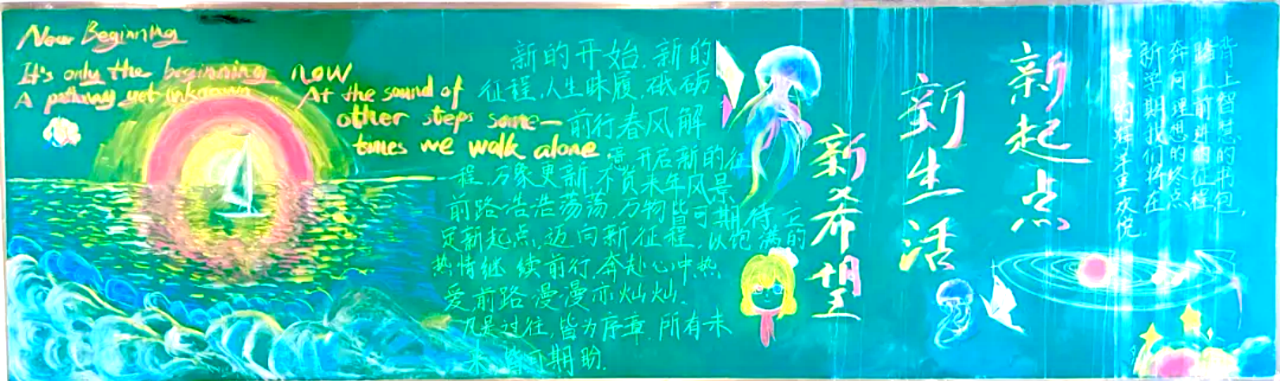 New Beginning
It's only the beginning now
A pathway yet unknown
At the sound of
other steps some-
times we walk alone
新的开始.新的
征程,人生昧履,砥砺
前行春风解
意,开启新的征
程.万象更新,不负来年风景
前路浩浩荡荡.万物皆可期待.立
足新起点,迈向新征程.以饱满的
热情继续前行.奔赴心中热
爱.前路漫漫亦灿灿.
凡是过往,皆为序章.所有未
来,皆可期盼.
新希望
新生活
新起点
背上智慧的书包,
踏上前进的征程
奔向理想的终点
新学期我们将在
的群羊重欢悦